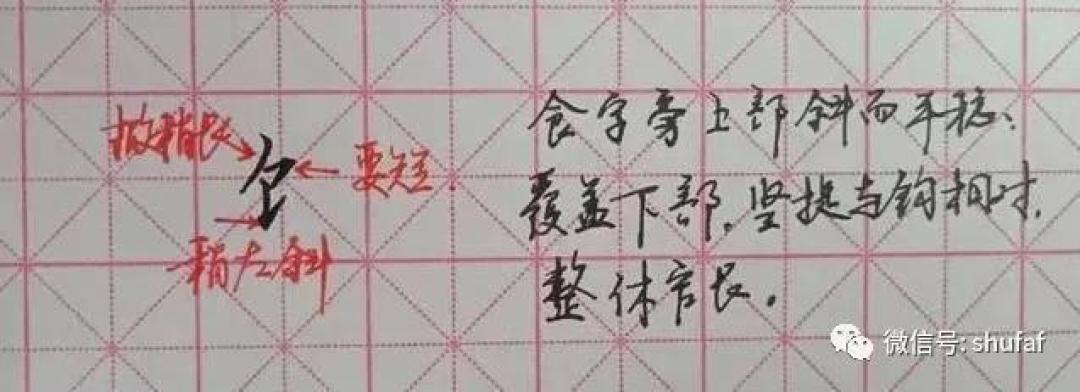 撇稍长
饣
要短.
稍左斜
食字旁上部斜而平稳、
覆盖下部,竖提与钩相对,
整体窄长。
微信号: shufaf